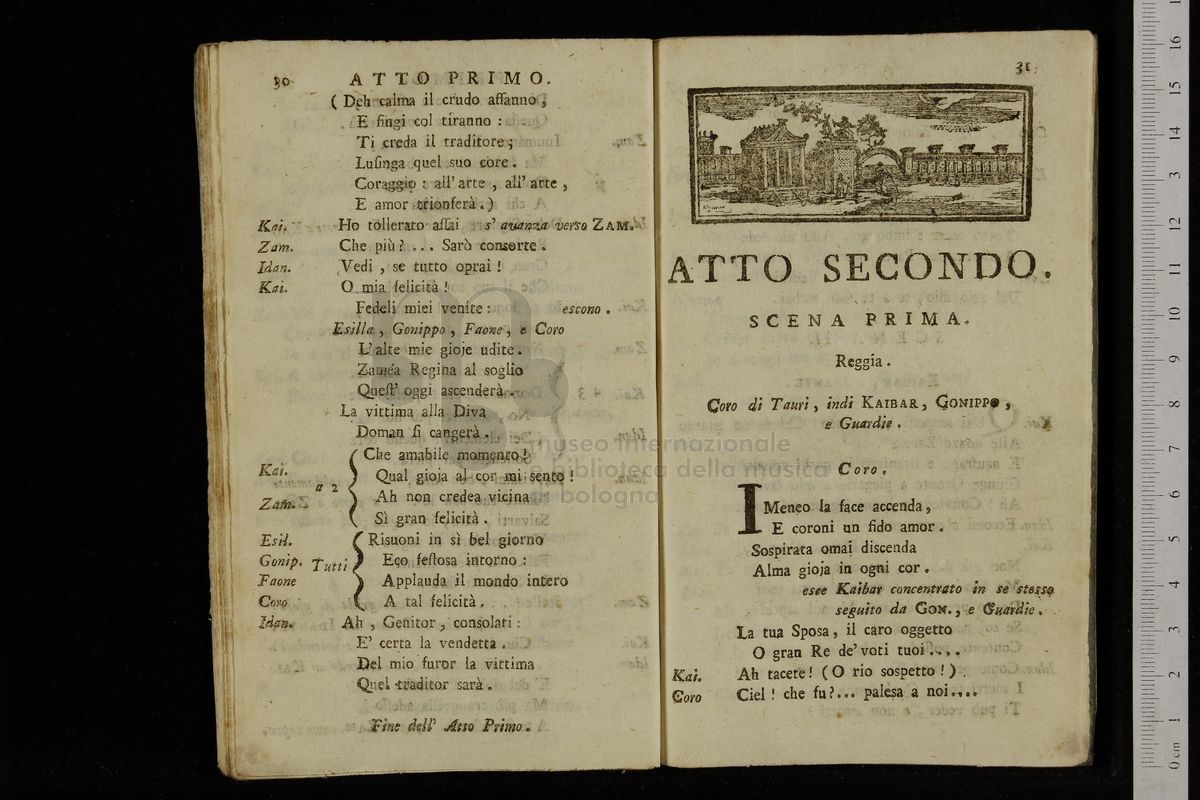 30 ATTO PRIMO.
( Deh calma il crudo affanno ,
E fingi col tiranno :
Ti creda il traditore ;
Luſinga quel suo core .
Coraggio : all' arte , all' arte ,
E amor trionferà . )
Kai. Ho tollerato aſſai s' avanza verso ZAM.
Zam. Che più ? ... Sarò consorte .
Idan. Vedi , se tutto oprai !
Kai. O mia felicità !
Fedeli miei venite : escono .
Esilla , Gonippo , Faone , e Coro
L' alte mie gioje udite .
Zaméa Regina al soglio
Queſt' oggi ascenderà .
La vittima alla Diva
Doman ſi cangerà .
Kai. Che amabile momento !
Qual gioja al cor mi sento !
a 2
Zam. Ah non credea vicina
Sì gran felicità .
Esil. Risuoni in sì bel giorno
Gonip. Tutti Eco feſtosa intorno :
Faone Applauda il mondo intero
Coro A tal felicità .
Idan. Ah , Genitor , consolati :
E' certa la vendetta .
Del mio furor la vittima
Quel traditor sarà .
Fine dell' Atto Primo .
31
ATTO SECONDO.
SCENA PRIMA.
Reggia .
Coro di Tauri , indi KAIBAR , GONIPPO ,
e Guardie .
Coro .
IMeneo la face accenda ,
E coroni un fido amor .
Sospirata omai discenda
Alma gioja in ogni cor .
esce Kaibar concentrato in se stesso
seguito da GON. , e Guardie .
La tua Sposa , il caro oggetto
O gran Re de' voti tuoi ....
Kai. Ah tacete ! ( O rio sospetto ! )
Coro Ciel ! che fu ?... palesa a noi ....
museo internazionale
e biblioteca della musica
di bologna
0 cm 1 2 3 4 5 6 7 8 9 10 11 12 13 14 15 16